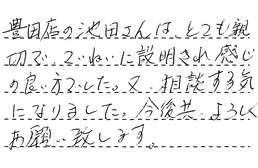 豊田店の池田さんは、とても親
切で、ていねいに説明され感じ
の良い方でした。又、相談する気
になりました。今後共、よろしく
お願い致します。